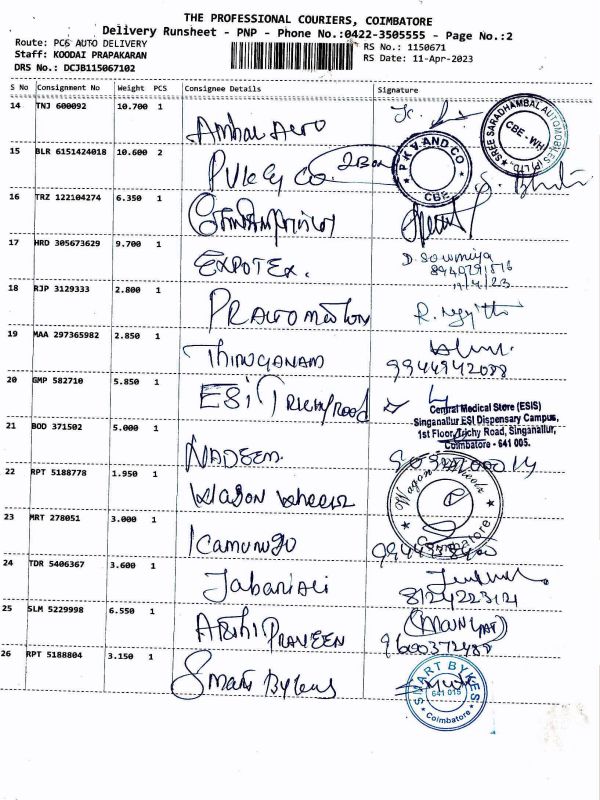 THE PROFESSIONAL COURIERS, COIMBATORE
Delivery Runsheet - PNP - Phone No.:0422-3505555 - Page No.:2
Route: PC6 AUTO DELIVERY
Staff: KOODAI PRAPAKARAN
DRS No.: DCJB115067102
RS No.: 1150671
RS Date: 11-Apr-2023
S No Consignment No Weight PCS Consignee Details Signature
14 TNJ 600092 10.700 1
Ambal Aero
SREE SARADHAMBAL AUTOMOBILES (P) LTD.
CBE - WH
15 BLR 6151424018 10.600 2
PVK & Co. 2 Box
P K V AND CO
CBE
16 TRZ 122104274 6.350 1
17 HRD 305673629 9.700 1
EXPOTEX.
D. Sowmiya
18 RJP 3129333 2.800 1
19 MAA 297365982 2.850 1
THIRUGANAM
9944942088
20 GMP 582710 5.850 1
ESI TRICHY ROAD
Central Medical Store (ESIS)
Singanallur ESI Dispensary Campus,
1st Floor, Trichy Road, Singanallur,
Coimbatore - 641 005.
21 BOD 371502 5.000 1
NADEEM.
22 RPT 5188778 1.950 1
Wagon Wheels
Wagon Wheels
Coimbatore
23 MRT 278051 3.000 1
24 TDR 5406367 3.600 1
Jabarali
8124223121
25 SLM 5229998 6.550 1
PRAVEEN
9600372488
26 RPT 5188804 3.150 1
Smart Bykes
SMART BYKES
641 015
Coimbatore